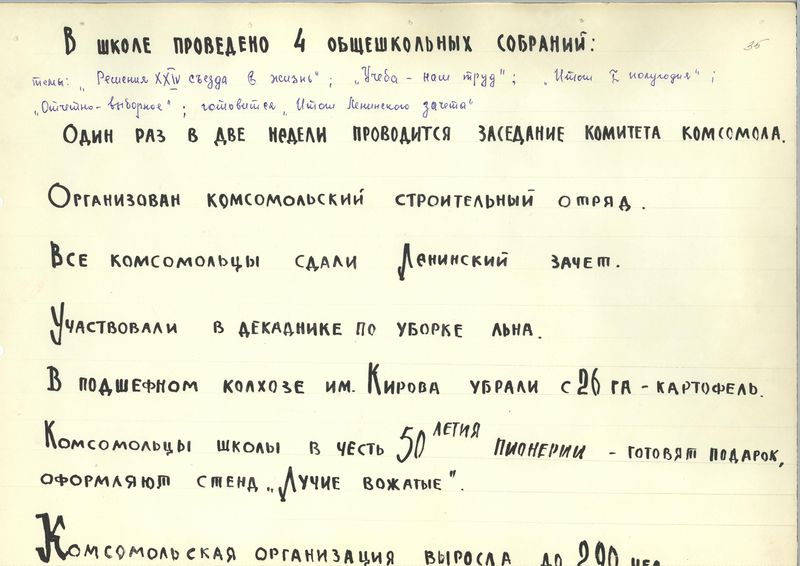 35
В ШКОЛЕ ПРОВЕДЕНО 4 ОБЩЕШКОЛЬНЫХ СОБРАНИЙ:
темы: „Решения XXIV съезда в жизнь"; „Учеба - наш труд"; „Итоги I полугодия";
„Отчетно-выборное"; готовится „Итоги Ленинского зачета"
ОДИН РАЗ В ДВЕ НЕДЕЛИ ПРОВОДИТСЯ ЗАСЕДАНИЕ КОМИТЕТА КОМСОМОЛА.
ОРГАНИЗОВАН КОМСОМОЛЬСКИЙ СТРОИТЕЛЬНЫЙ ОТРЯД.
ВСЕ КОМСОМОЛЬЦЫ СДАЛИ ЛЕНИНСКИЙ ЗАЧЕТ.
УЧАСТВОВАЛИ В ДЕКАДНИКЕ ПО УБОРКЕ ЛЬНА.
В ПОДШЕФНОМ КОЛХОЗЕ ИМ. КИРОВА УБРАЛИ С 26 ГА - КАРТОФЕЛЬ.
КОМСОМОЛЬЦЫ ШКОЛЫ В ЧЕСТЬ 50 ЛЕТИЯ ПИОНЕРИИ - ГОТОВЯТ ПОДАРОК,
ОФОРМЛЯЮТ СТЕНД „ЛУЧИЕ ВОЖАТЫЕ".
КОМСОМОЛЬСКАЯ ОРГАНИЗАЦИЯ ВЫРОСЛА ДО 290 ЧЕЛ